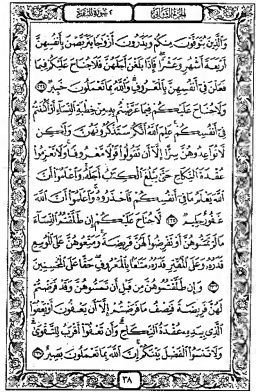 الجزء الثاني سورة البقرة ٢
وَالَّذِينَ يُتَوَفَّوْنَ مِنكُمْ وَيَذَرُونَ أَزْوَاجًا يَتَرَبَّصْنَ بِأَنفُسِهِنَّ
أَرْبَعَةَ أَشْهُرٍ وَعَشْرًا فَإِذَا بَلَغْنَ أَجَلَهُنَّ فَلَا جُنَاحَ عَلَيْكُمْ فِيمَا
فَعَلْنَ فِي أَنفُسِهِنَّ بِالْمَعْرُوفِ وَاللَّهُ بِمَا تَعْمَلُونَ خَبِيرٌ ٢٣٤
وَلَا جُنَاحَ عَلَيْكُمْ فِيمَا عَرَّضْتُم بِهِ مِنْ خِطْبَةِ النِّسَاءِ أَوْ أَكْنَنتُمْ
فِي أَنفُسِكُمْ عَلِمَ اللَّهُ أَنَّكُمْ سَتَذْكُرُونَهُنَّ وَلَٰكِن
لَّا تُوَاعِدُوهُنَّ سِرًّا إِلَّا أَن تَقُولُوا قَوْلًا مَّعْرُوفًا وَلَا تَعْزِمُوا
عُقْدَةَ النِّكَاحِ حَتَّىٰ يَبْلُغَ الْكِتَابُ أَجَلَهُ وَاعْلَمُوا أَنَّ
اللَّهَ يَعْلَمُ مَا فِي أَنفُسِكُمْ فَاحْذَرُوهُ وَاعْلَمُوا أَنَّ اللَّهَ
غَفُورٌ حَلِيمٌ ٢٣٥ لَّا جُنَاحَ عَلَيْكُمْ إِن طَلَّقْتُمُ النِّسَاءَ
مَا لَمْ تَمَسُّوهُنَّ أَوْ تَفْرِضُوا لَهُنَّ فَرِيضَةً وَمَتِّعُوهُنَّ عَلَى الْمُوسِعِ
قَدَرُهُ وَعَلَى الْمُقْتِرِ قَدَرُهُ مَتَاعًا بِالْمَعْرُوفِ حَقًّا عَلَى الْمُحْسِنِينَ
٢٣٦ وَإِن طَلَّقْتُمُوهُنَّ مِن قَبْلِ أَن تَمَسُّوهُنَّ وَقَدْ فَرَضْتُمْ
لَهُنَّ فَرِيضَةً فَنِصْفُ مَا فَرَضْتُمْ إِلَّا أَن يَعْفُونَ أَوْ يَعْفُوَا
الَّذِي بِيَدِهِ عُقْدَةُ النِّكَاحِ وَأَن تَعْفُوا أَقْرَبُ لِلتَّقْوَىٰ
وَلَا تَنسَوُا الْفَضْلَ بَيْنَكُمْ إِنَّ اللَّهَ بِمَا تَعْمَلُونَ بَصِيرٌ ٢٣٧
٣٨